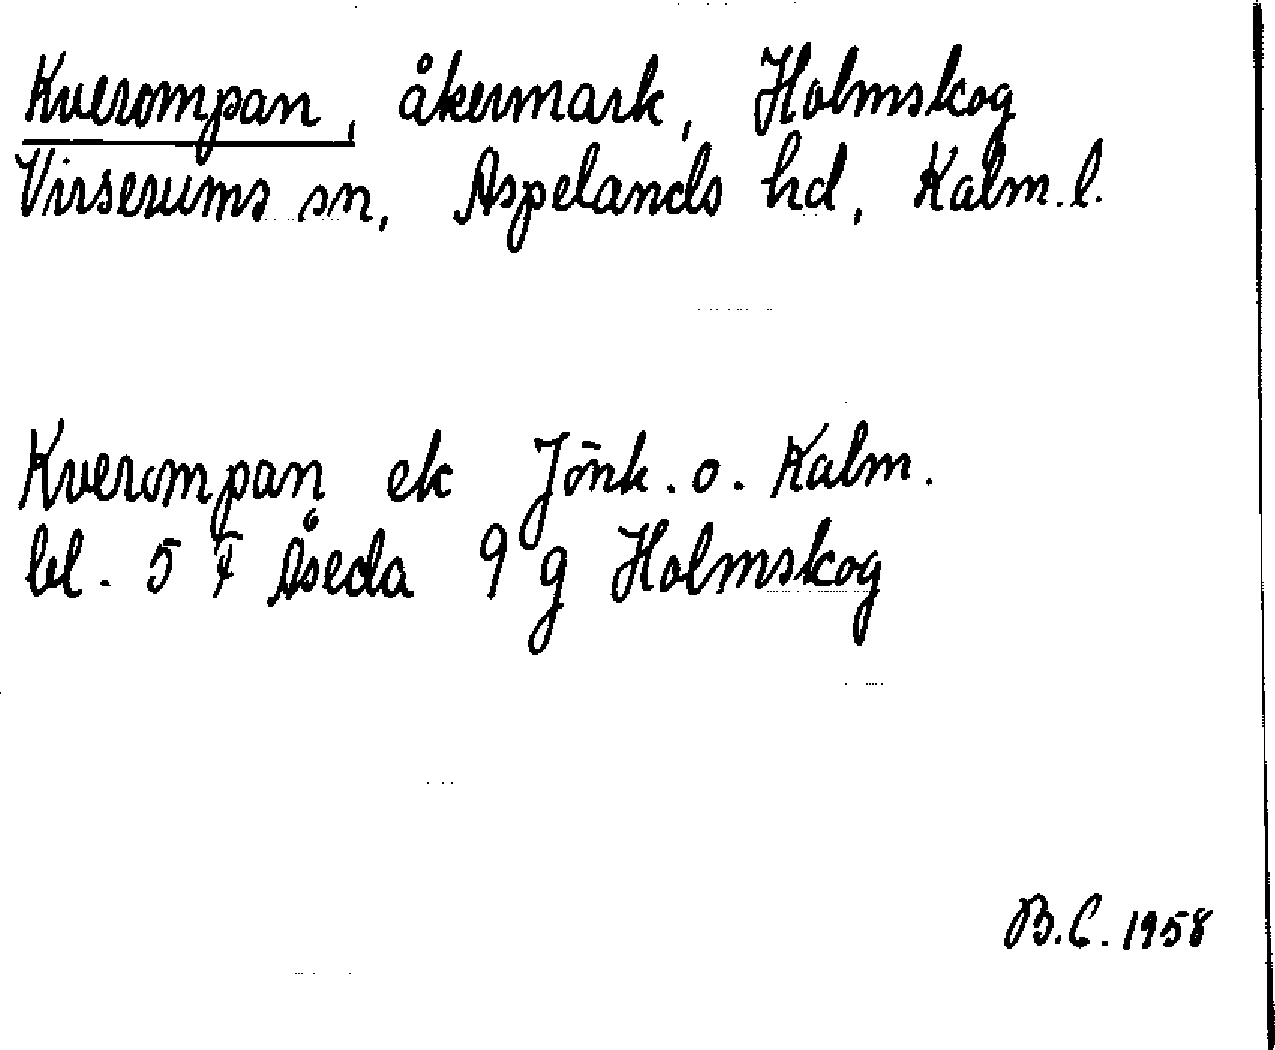 Kverompan, åkermark, Holmskog
Virserums sn, Aspelands hd, Kalm. l.
Kverompan ek Jönk. o. Kalm.
bl. 5 F Åseda 9 g Holmskog
B.C. 1958